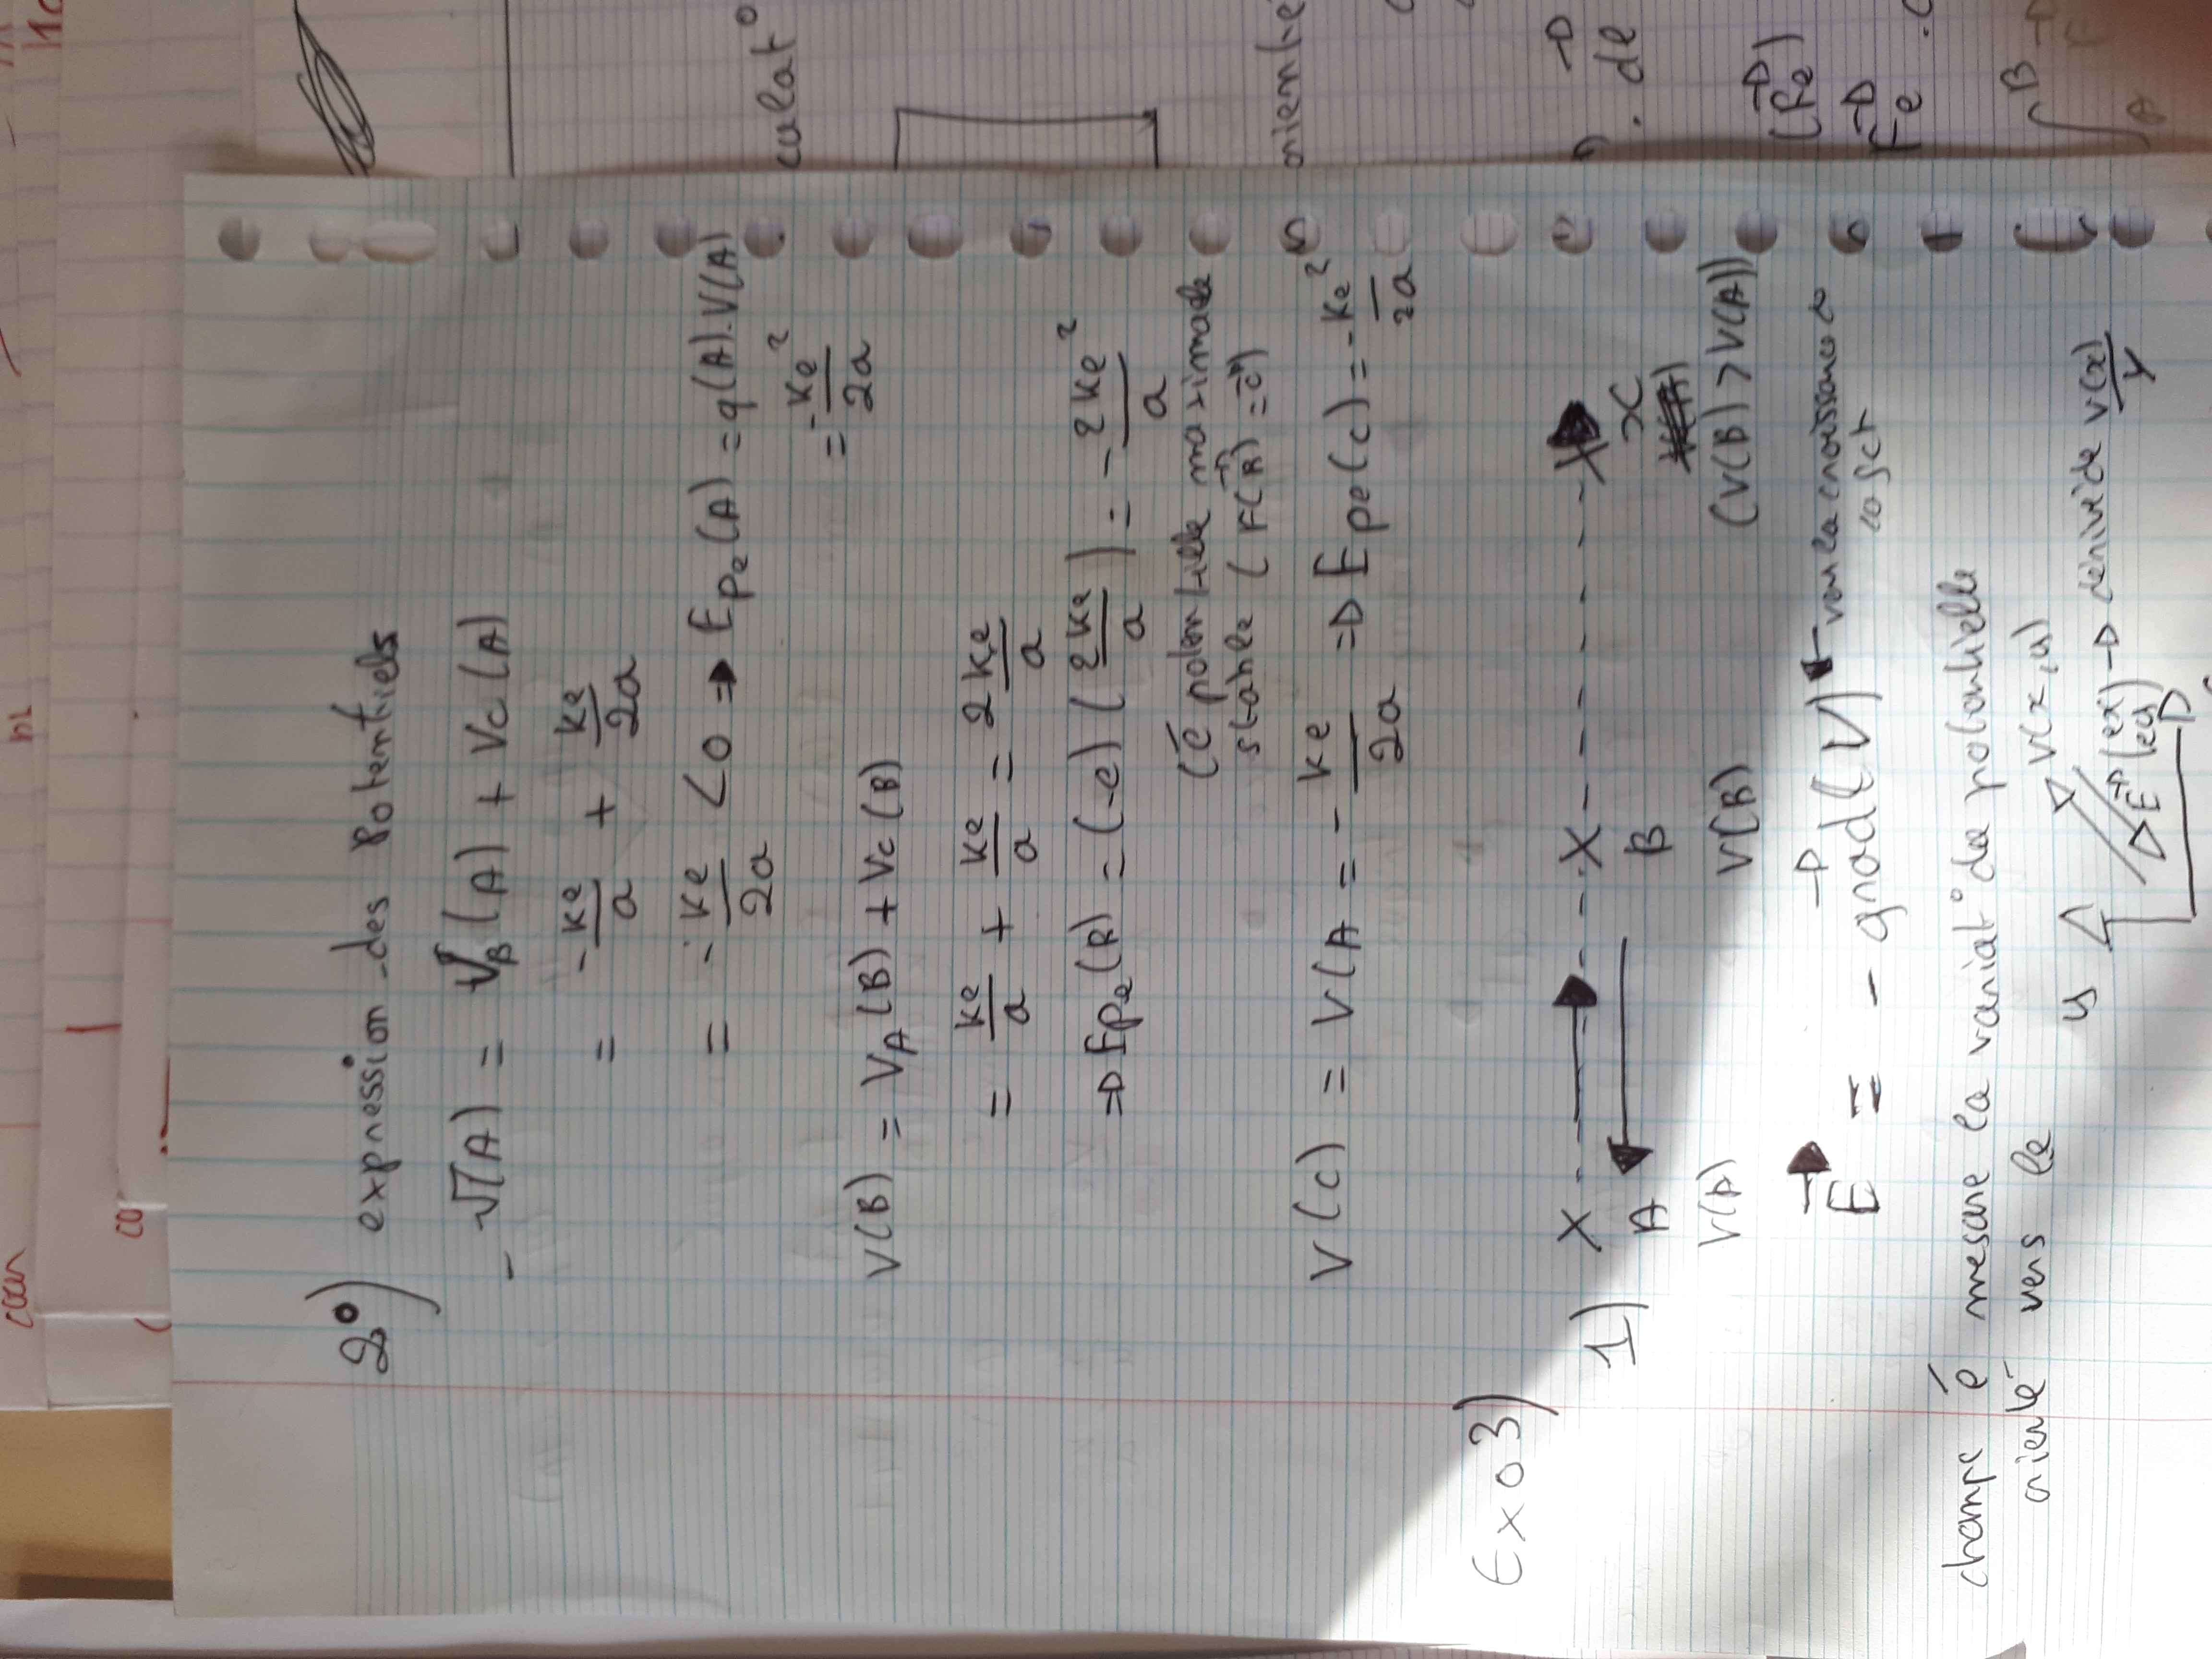 2°) expression des Potentiels
- V(A) = VB(A) + Vc(A)
= -ke/a + ke/2a
= -ke/2a <0 → Epe(A) = q(A).V(A)
= -ke²/2a
V(B) = VA(B) + Vc(B)
= ke/a + ke/a = 2ke/a
⇒ Epe(B) = (-e) (2ke/a) = -2ke²/a
(É potentielle maximale
stable (F(B) = 0)
V(c) = V(A = -ke/2a ⇒ Epe(c) = -ke²/2a
Exo 3)
1) X X X
A B x
V(A) V(B) (V(B) > V(A))
E = - grad(V) vers la croissance
champ é mesure la variat° de potentielle
orienté vers le
y V(x,y)
E (ex) → dérivée V(x)/y
(ey)
culat°
oriente
. dl
(Fe)
Fe .
∫ B
A